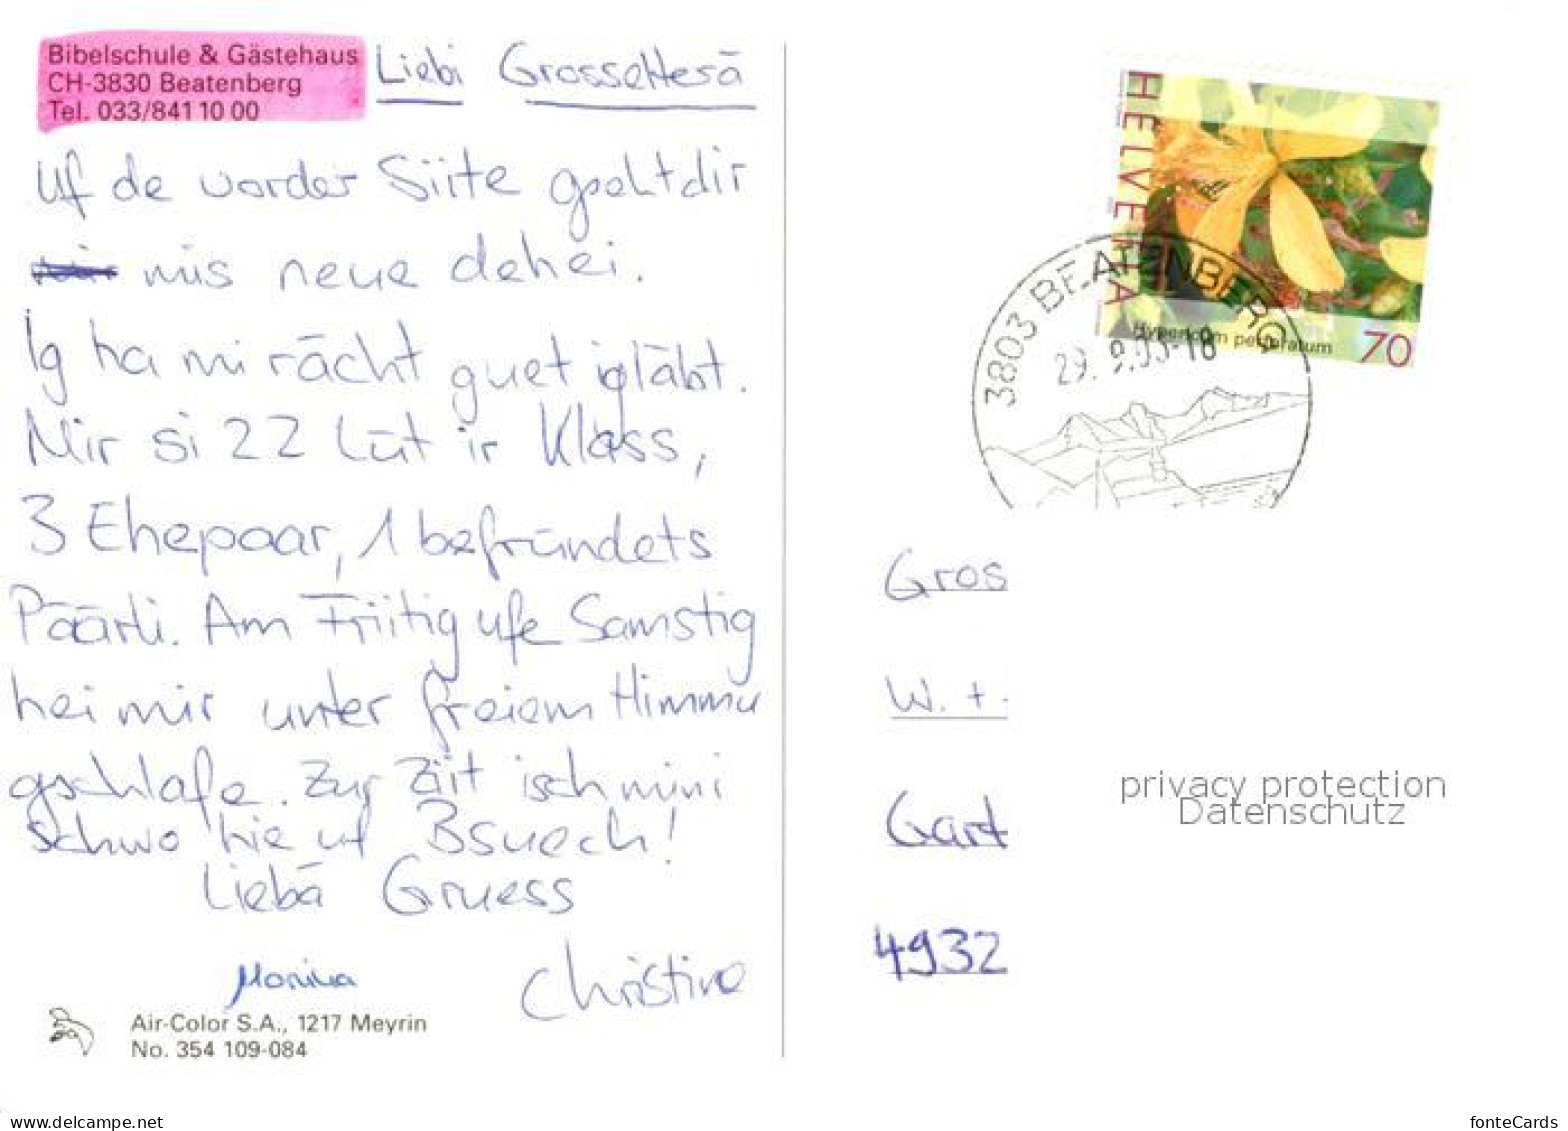 Bibelschule & Gästehaus
CH-3830 Beatenberg
Tel. 033/841 10 00
Liebi Grosselterä
Uf de vorder Siite gseht dir
mis neue dehei.
Ig ha mi rächt guet igläbt.
Mir si 22 Lüt ir Klass,
3 Ehepaar, 1 befründets
Päärli. Am Friitig ufe Samstig
hei mir unter freiem Himmu
gschlafe. Zur Ziit isch mini
schwo hie uf Bsuech!
Liebä Gruess
Monika
Christine
Air-Color S.A., 1217 Meyrin
No. 354 109-084
HELVETIA
Hypericum perforatum
70
3803 BEATENBERG
29. 9.03-18
Gros
W. +
Gart
4932
privacy protection
Datenschutz
www.delcampe.net
fonteCards